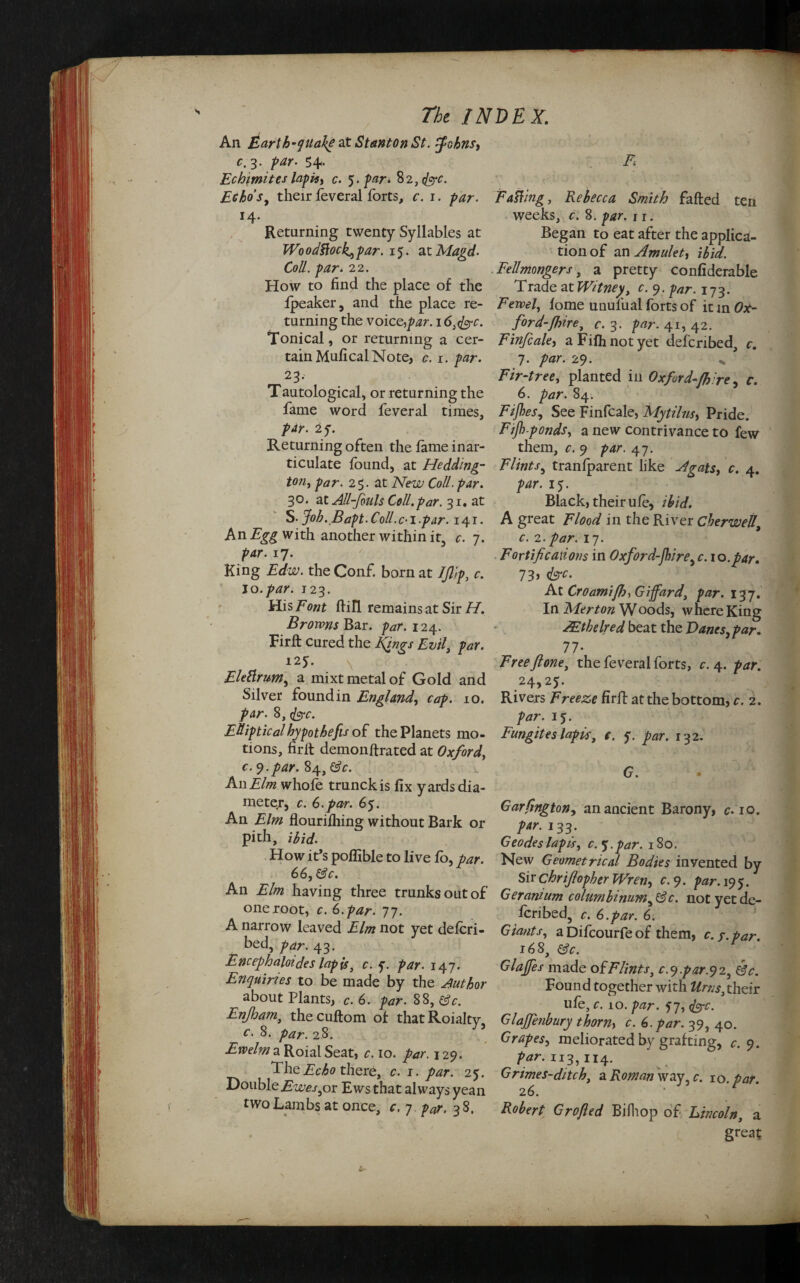 The INDEX.
An Earth-quake at Stanton St. Johns,
c. 3. par. 54.
Echimites lapis, c. 5. par. 82, &c.
Echo's, their ſeveral ſorts, c. 1. par.
14.
Returning twenty Syllables at
Woodſtock, par. 15. at Magd.
Coll. par. 22.
How to find the place of the
ſpeaker, and the place re-
turning the voice, par. 16, &c.
Tonical, or returning a cer-
tain Muſical Note, c. 1. par.
23.
Tautological, or returning the
ſame word ſeveral times,
par. 25.
Returning often the ſame inar-
ticulate ſound, at Hedding-
ton, par. 25. at New Coll. par.
30. at All-ſouls Coll. par. 31. at
S. Joh. Bapt. Coll. c. 1. par. 141.
An Egg with another within it, c. 7.
par. 17.
King Edw. the Conf. born at Iſlip, c.
10. par. 123.
His Font ſtill remains at Sir H.
Browns Bar. par. 124.
Firſt cured the Kings Evil, par.
125.
Electrum, a mixt metal of Gold and
Silver found in England, cap. 10.
par. 8, &c.
Elliptical hypotheſis of the Planets mo-
tions, firſt demonſtrated at Oxford,
c. 9. par. 84, &c.
An Elm whoſe trunck is ſix yards dia-
meter, c. 6. par. 65.
An Elm flouriſhing without Bark or
pith, ibid.
How it's poſſible to live ſo, par.
66, &c.
An Elm having three trunks out of
one root, c. 6. par. 77.
A narrow leaved Elm not yet deſcri-
bed, par. 43.
Encephaloides lapis, c. 5. par. 147.
Enquiries to be made by the Author
about Plants, c. 6. par. 88, &c.
Enſham, the cuſtom of that Roialty,
c. 8. par. 28.
Ewelm a Roial Seat, c. 10. par. 129.
The Echo there, c. 1. par. 25.
Double Ewes, or Ews that always yean
two Lambs at once, c. 7 par. 38.
F.
Faſting, Rebecca Smith faſted ten
weeks, c. 8. par. 11.
Began to eat after the applica-
tion of an Amulet, ibid.
Fellmongers, a pretty conſiderable
Trade at Witney, c. 9. par. 173.
Fewel, ſome unuſual ſorts of it in Ox-
ford-ſhire, c. 3. par. 41, 42.
Finſcale, a Fiſh not yet deſcribed, c.
7. par. 29.
Fir-tree, planted in Oxford-ſhire, c.
6. par. 84.
Fiſhes, See Finſcale, Mytilus, Pride.
Fiſh-ponds, a new contrivance to ſew
them, c. 9 par. 47.
Flints, tranſparent like Agats, c. 4.
par. 15.
Black, their uſe, ibid.
A great Flood in the River Cherwell,
c. 2. par. 17.
Fortifications in Oxford-ſhire, c. 10. par.
73, &c.
At Croamiſh, Giffard, par. 137.
In Merton Woods, where King
Æthelred beat the Danes, par.
77.
Free ſtone, the ſeveral ſorts, c. 4. par.
24, 25.
Rivers Freeze firſt at the bottom, c. 2.
par. 15.
Fungites lapis, c. 5. par. 132.
G.
Garſington, an ancient Barony, c. 10.
par. 133.
Geodes lapis, c. 5. par. 180.
New Geometrical Bodies invented by
Sir Chriſtopher Wren, c. 9. par. 195.
Geranium columbinum, &c. not yet de-
ſcribed, c. 6. par. 6.
Giants, a Diſcourſe of them, c. 5. par.
168, &c.
Glaſſes made of Flints, c. 9. par. 92, &c.
Found together with Urns, their
uſe, c. 10. par. 57, &c.
Glaſſenbury thorn, c. 6. par. 39, 40.
Grapes, meliorated by grafting, c. 9.
par. 113, 114.
Grimes-ditch, a Roman way, c. 10. par.
26.
Robert Groſted Biſhop of Lincoln, a
great